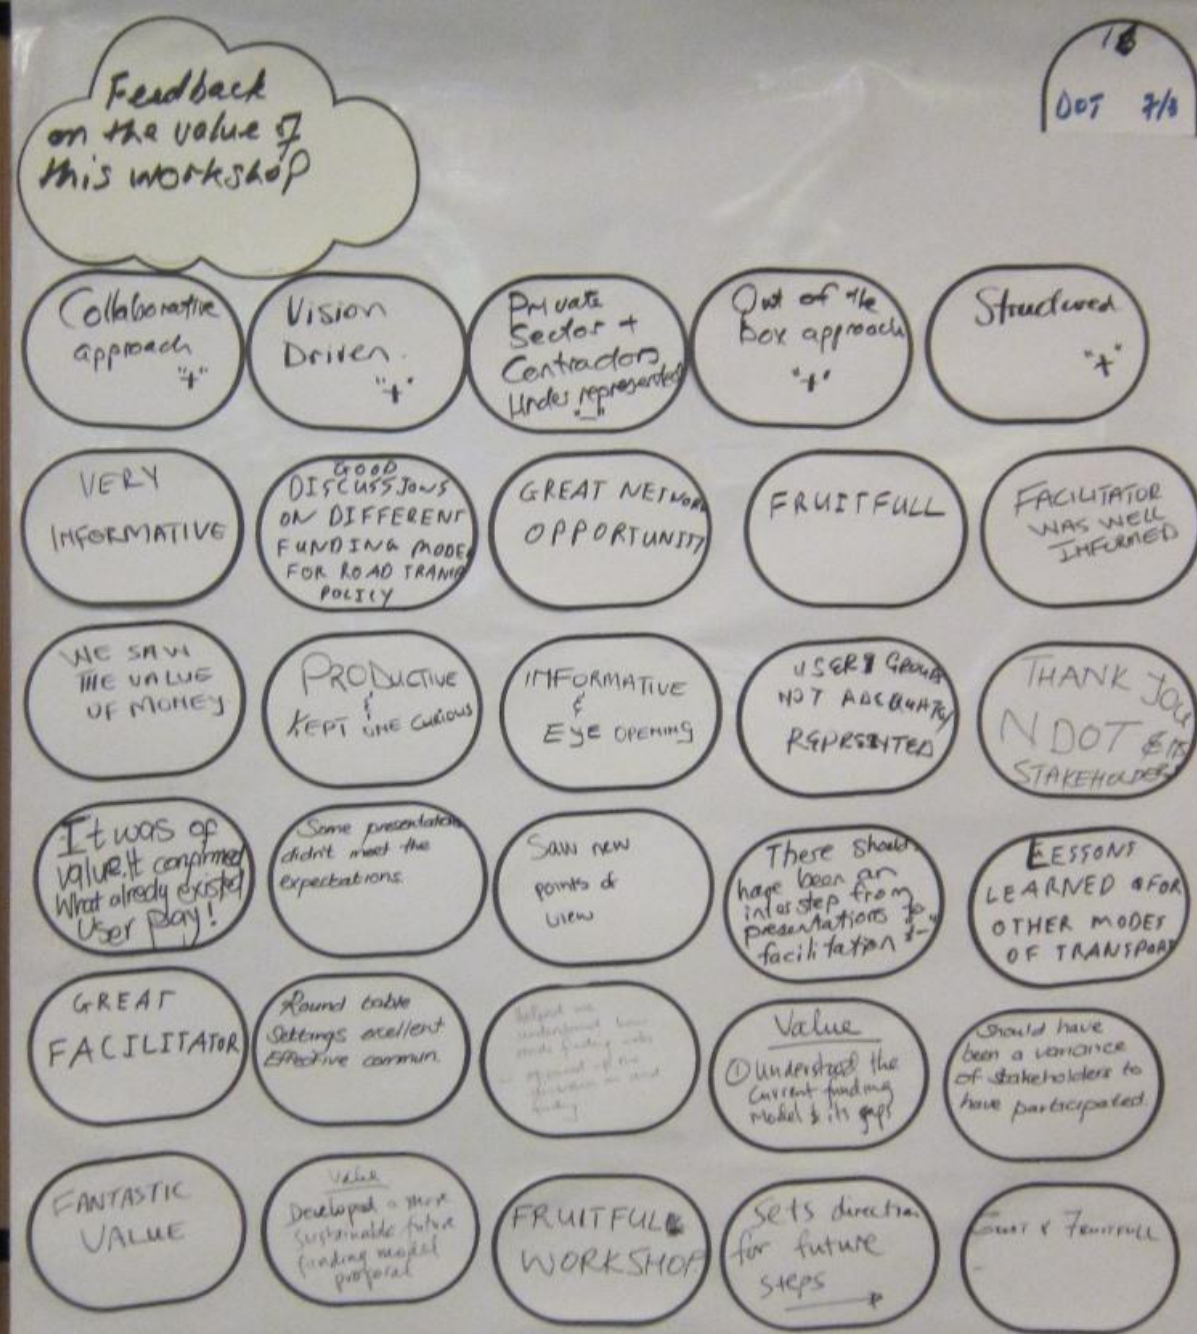 Feedback
on the value of
this workshop
16
DOT 7/8
Collaborative
approach
"+"
Vision
Driven.
"+"
Private
Sector +
Contractors
Under represented
"-"
Out of the
box approach
"+"
Structured
"+"
VERY
INFORMATIVE
GOOD
DISCUSSIONS
ON DIFFERENT
FUNDING MODE
FOR ROAD TRANSP
POLICY
GREAT NETWORK
OPPORTUNITY
FRUITFULL
FACILITATOR
WAS WELL
INFORMED
WE SAW
THE VALUE
OF MONEY
PRODUCTIVE
&
KEPT ONE CURIOUS
INFORMATIVE
&
EyE OPENING
USERS GROUPS
NOT ADEQUATELY
REPRESENTED
THANK YOU
NDOT & ITS
STAKEHOLDERS
It was of
value.It confirmed
What already existed
User pay!
Some presentations
didn't meet the
expectations
Saw new
points of
view
There should
have been an
step from
presentations to
facilitation "-"
LESSONS
LEARNED FOR
OTHER MODES
OF TRANSPORT
GREAT
FACILITATOR
Round table
Settings excellent
Effective commun.
helped me
understand how
funding
Value
① Understood the
current funding
model & its gaps
Should have
been a variance
of stakeholders to
have participated.
FANTASTIC
VALUE
Value
Developed a more
sustainable future
funding model
proposal
FRUITFUL
WORKSHOP
Sets direction
for future
steps
& FRUITFULL